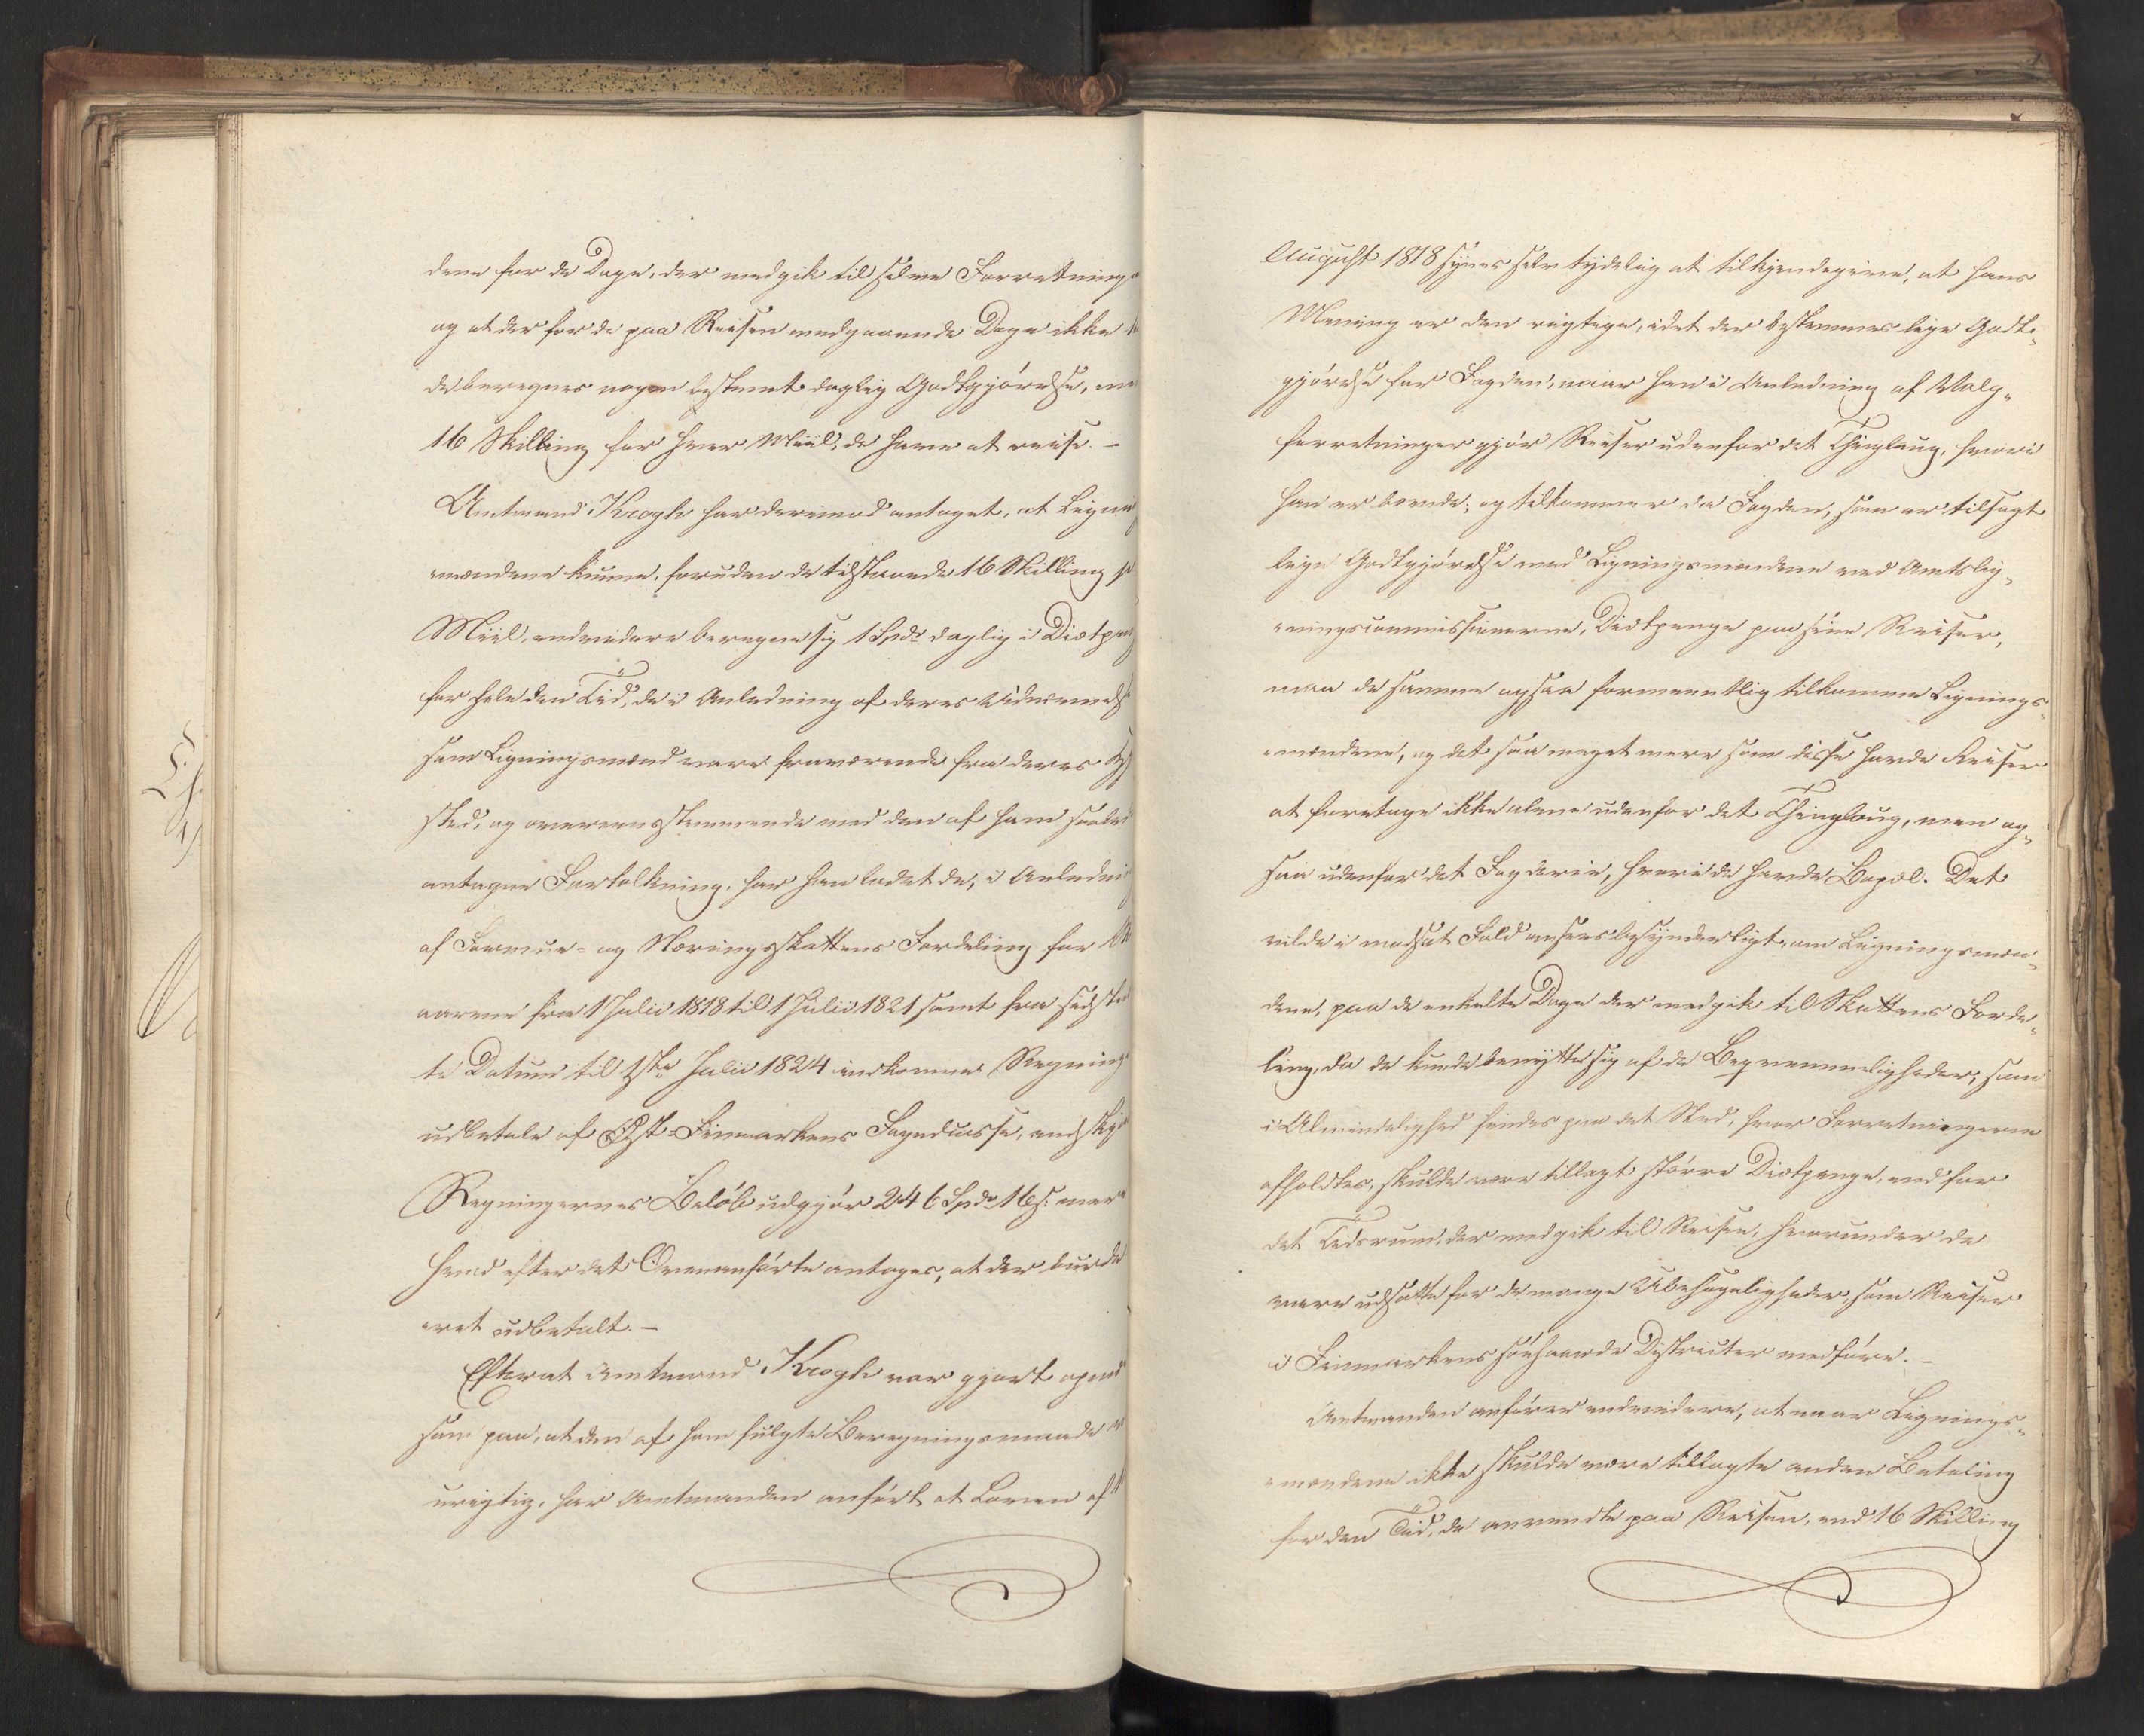 dene for de Dage, der medgik til selve Forretning
og at der for de paa Reisen medgaaende Dage ikke
de beregnes nogen bestemt daglig Godtgjörelse, me
16 Skilling for hver Miil, de have at reise. —
Amtmand Krogh har derimod antaget, at Ligni
mændene kunne, foruden de tilstaaede 16 Skilling p
Miil, endvidere beregne sig 1 Spd. daglig i Diætpen
for hele den Tid, de i Anledning af deres
som Ligningsmænd vare fraværende fra deres
sted, og overeensstemmende med den af ham saaled
antagne Fortolkning, har han ladet de, i Anledni
af Formue- og Næringsskattens Fordeling for
aarene fra 1 Julii 1818 til 1 Julii 1821 samt fra sidst
te Datum til 1ste Julii 1824 indkomne Regning
udbetale af Öst-Finmarkens Fogedcasse, endskj
Regningernes Belöb udgjör 246 Spd. 16 s. mere
hvad efter det Ovenanförte antages, at der burde
æret udbetalt. —
Efterat Amtmand Krogh var gjort opmærk
som paa, at den af ham fulgte Beregningsmaade
urigtig, har Amtmanden anfört at Loven af
August 1818 synes selv tydelig at tilkjendegive, at hans
Mening er den rigtige, idet der bestemmes lige Godt-
gjörelse for Fogden, naar han i Anledning af Valg-
forretninger gjör Reiser udenfor det Thinglaug, hvori
han er boende; og tilkommer da Fogden, som er tilsagt
lige Godtgjörelse med Ligningsmændene ved Amtslig-
ningscommissionerne, Diætpenge paa sine Reiser,
maa de samme ogsaa formeentlig tilkomme Lignings-
mændene, og det saa meget mere som disse havde Reiser
at foretage ikke alene udenfor det Thinglaug, men og-
saa udenfor det Fogderie, hvori de havde Bopæl. Det
vilde i modsat Fald ansees besynderligt, om Ligningsmæn-
dene, paa de enkelte Dage der medgik til Skattens Forde-
ling, da de kunde benytte sig af de Beqvemmeligheder, som
i Almindelighed findes paa det Sted, hvor Forretningerne
afholdtes, skulde være tillagt större Diætpenge, end for
det Tidsrum, der medgik til Reisen, hvorunder de
vare udsatte for de mange Ubehageligheder som Reiser
i Finmarkens Districter medföre. —
Amtmanden anförer endvidere, at naar Lignings-
mændene ikke skulde være tillagte anden Betaling
for den Tid, de anvendte paa Reisen, end 16 Skilling